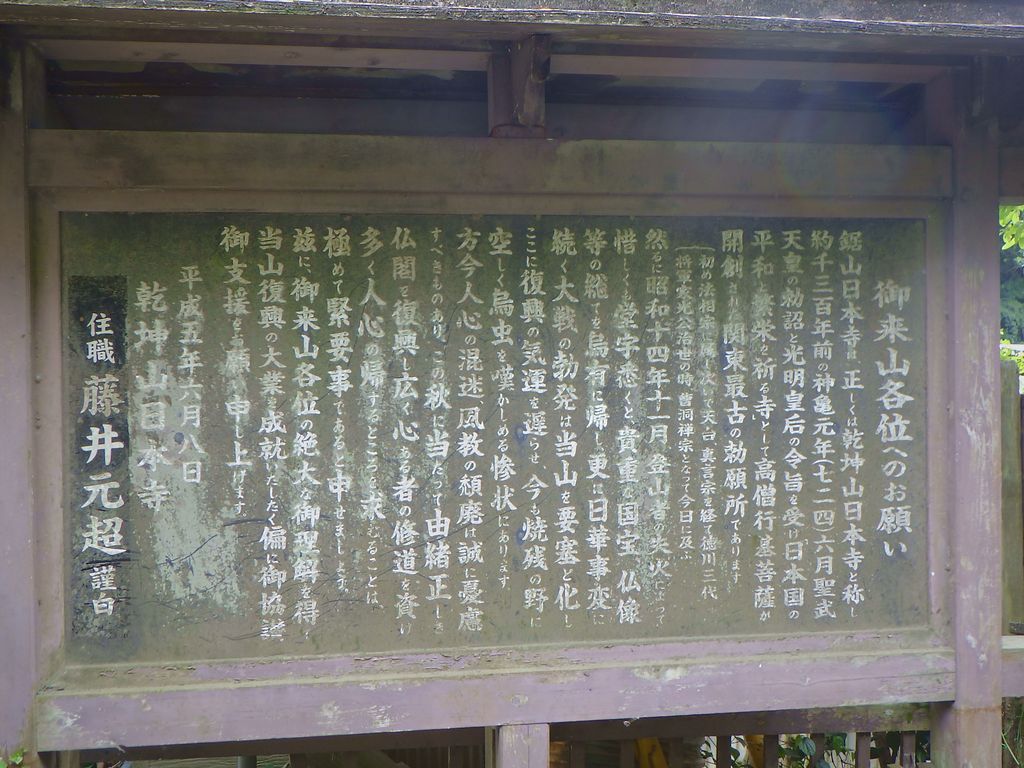 御来山各位へのお願い
鋸山日本寺は正しくは乾坤山日本寺と称し
約千三百年前の神亀元年(七二四)六月聖武
天皇の勅詔と光明皇后の令旨を受け日本国の
平和と繁栄を祈る寺として高僧行基菩薩が
開創された関東最古の勅願所であります
(初め法相宗に属し次で天台、真言宗を経て徳川三代
将軍家光公治世の時、曹洞禅宗となって今日に及ぶ)
然るに昭和十四年十一月登山者の失火によって
惜しくも堂宇悉くと、貴重な国宝、仏像
等の総てを烏有に帰し、更に日華事変に
続く大戦の勃発は当山を要塞と化し
ここに復興の気運を遅らせ、今も焼残の野に
空しく烏虫を嘆かしめる惨状にあります
方今人心の混迷風教の頽廃は誠に憂慮
すべきものあり、この秋に当たって由緒正しき
仏閣を復興し広く心ある者の修道を資け
多く人心の帰するところを求むることは、
極めて緊要事であると申せましょう。
茲に、御来山各位の絶大な御理解を得、
当山復興の大業を成就いたしたく偏に御協讃
御支援を願い申し上げます。
平成五年六月八日
乾坤山日本寺
住職 藤井元超 謹白